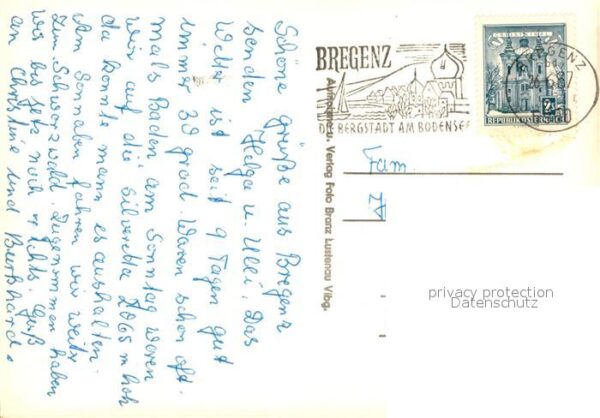 Schöne grüße aus Bregenz
senden Helga u. Ulli. Das
Wetter ist seit 9 Tagen gut
immer 30 grad. Waren schon oft
mals Baden am Sonntag waren
wir auf die Silveretta 2065 m hoh
da konnte mann es aushalten.
Am Sonnaben fahren wir weiter
zum Schwarzwald. Zugenommen haben
wir bis jetz noch nichts. Gruß
an Christine und Burkhard.
BREGENZ
DIE BERGSTADT AM BODENSEE
BREGENZ
REPUBLIK ÖSTERREICH
Aufnahme u. Verlag Foto Branz Lustenau Vlbg.
Fam.
privacy protection
Datenschutz